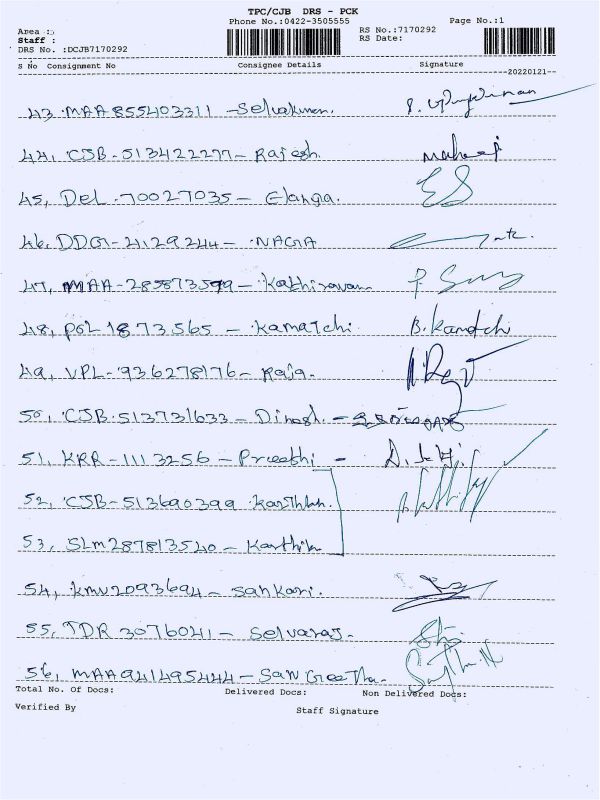 TPC/CJB DRS - PCK
Phone No.:0422-3505555 Page No.:1
Area :
Staff : RS No.:7170292
DRS No. :DCJB7170292 RS Date:
S No Consignment No Consignee Details Signature
--20220121--
43. MAA 855403311 - Selvakumar.
44, CJB-513422277 - Rajesh.
45, Del.70027035 - Elanga.
46, DDG-4129244 - NAGA
47, MAA-285873599 - Kathiravan
48, POL 1873565 - Kamatchi B. Kamatchi
49, VPL-936278176 - Raja.
50, CJB.513731633 - Dinesh. -
51, KRR-1113256 - Preethi -
52, CJB-513690399 Karthik
53, SLM287813540 - Karthik
54, KMU2093694 - Sankari.
55, TDR 3076041 - Selvaraj.
56, MAA941495444 - Sangeetha.
Total No. Of Docs: Delivered Docs: Non Delivered Docs:
Verified By Staff Signature